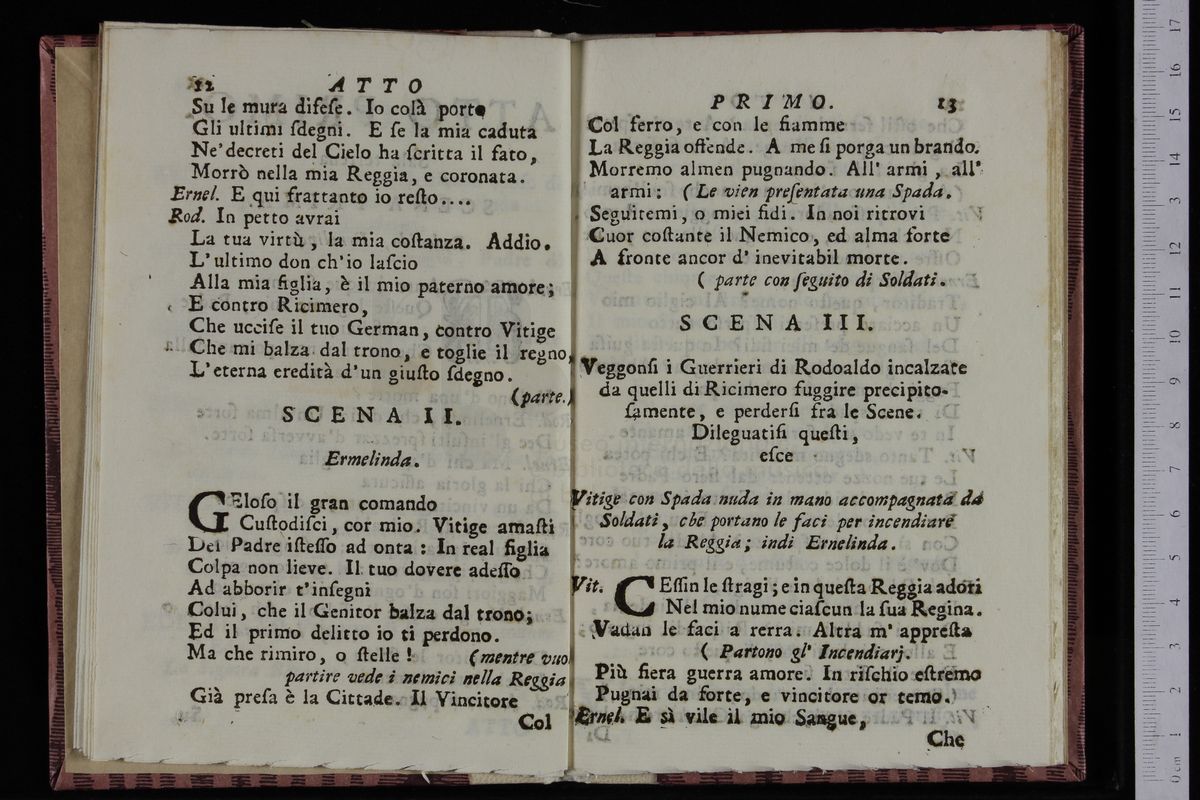 12 ATTO
Su le mura difeſe. Io colà porto
Gli ultimi ſdegni. E ſe la mia caduta
Ne'decreti del Cielo ha ſcritta il fato,
Morrò nella mia Reggia, e coronata.
Ernel. E qui frattanto io reſto....
Rod. In petto avrai
La tua virtù, la mia coſtanza. Addio.
L'ultimo don ch'io laſcio
Alla mia figlia, è il mio paterno amore;
E contro Ricimero,
Che ucciſe il tuo German, contro Vitige
Che mi balza dal trono, e toglie il regno,
L'eterna eredità d'un giuſto ſdegno.
(parte.)
SCENA II.
Ermelinda.
GEloſo il gran comando
Cuſtodiſci, cor mio. Vitige amaſti
Del Padre iſteſſo ad onta: In real figlia
Colpa non lieve. Il tuo dovere adeſſo
Ad abborir t'inſegni
Colui, che il Genitor balza dal trono;
Ed il primo delitto io ti perdono.
Ma che rimiro, o ſtelle! (mentre vuol
partire vede i nemici nella Reggia
Già preſa è la Cittade. Il Vincitore
Col
PRIMO. 13
Col ferro, e con le fiamme
La Reggia offende. A me ſi porga un brando.
Morremo almen pugnando. All' armi, all'
armi: (Le vien preſentata una Spada.
Seguitemi, o miei fidi. In noi ritrovi
Cuor coſtante il Nemico, ed alma forte
A fronte ancor d'inevitabil morte.
( parte con ſeguito di Soldati.
SCENA III.
Veggonſi i Guerrieri di Rodoaldo incalzate
da quelli di Ricimero fuggire precipito-
ſamente, e perderſi fra le Scene.
Dileguatiſi queſti,
eſce
Vitige con Spada nuda in mano accompagnata da
Soldati, che portano le faci per incendiare
la Reggia; indi Ernelinda.
Vit. CEſſin le ſtragi; e in queſta Reggia adori
Nel mio nume ciaſcun la ſua Regina.
Vadan le faci a rerra. Altra m' appreſta
( Partono gl' Incendiarj.
Più fiera guerra amore. In riſchio eſtremo
Pugnai da forte, e vincitore or temo.
Ernel. E sì vile il mio Sangue,
Che